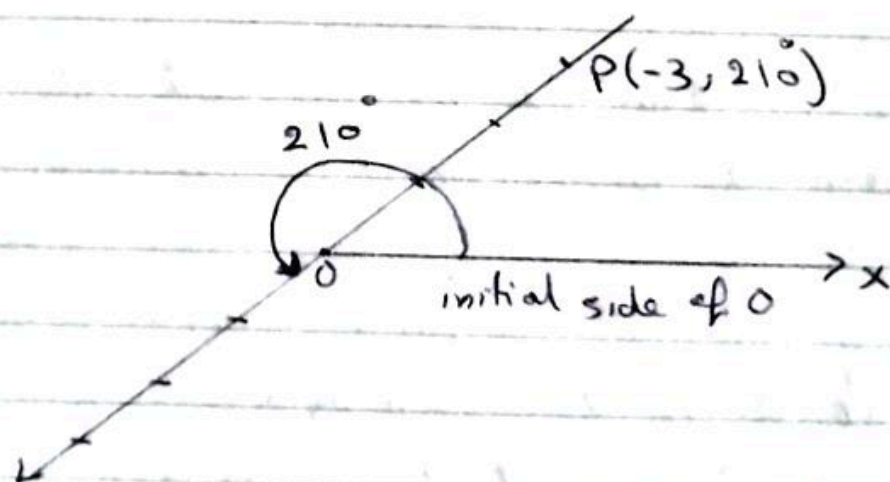 P(-3, 210°)
210°
0
x
initial side of 0